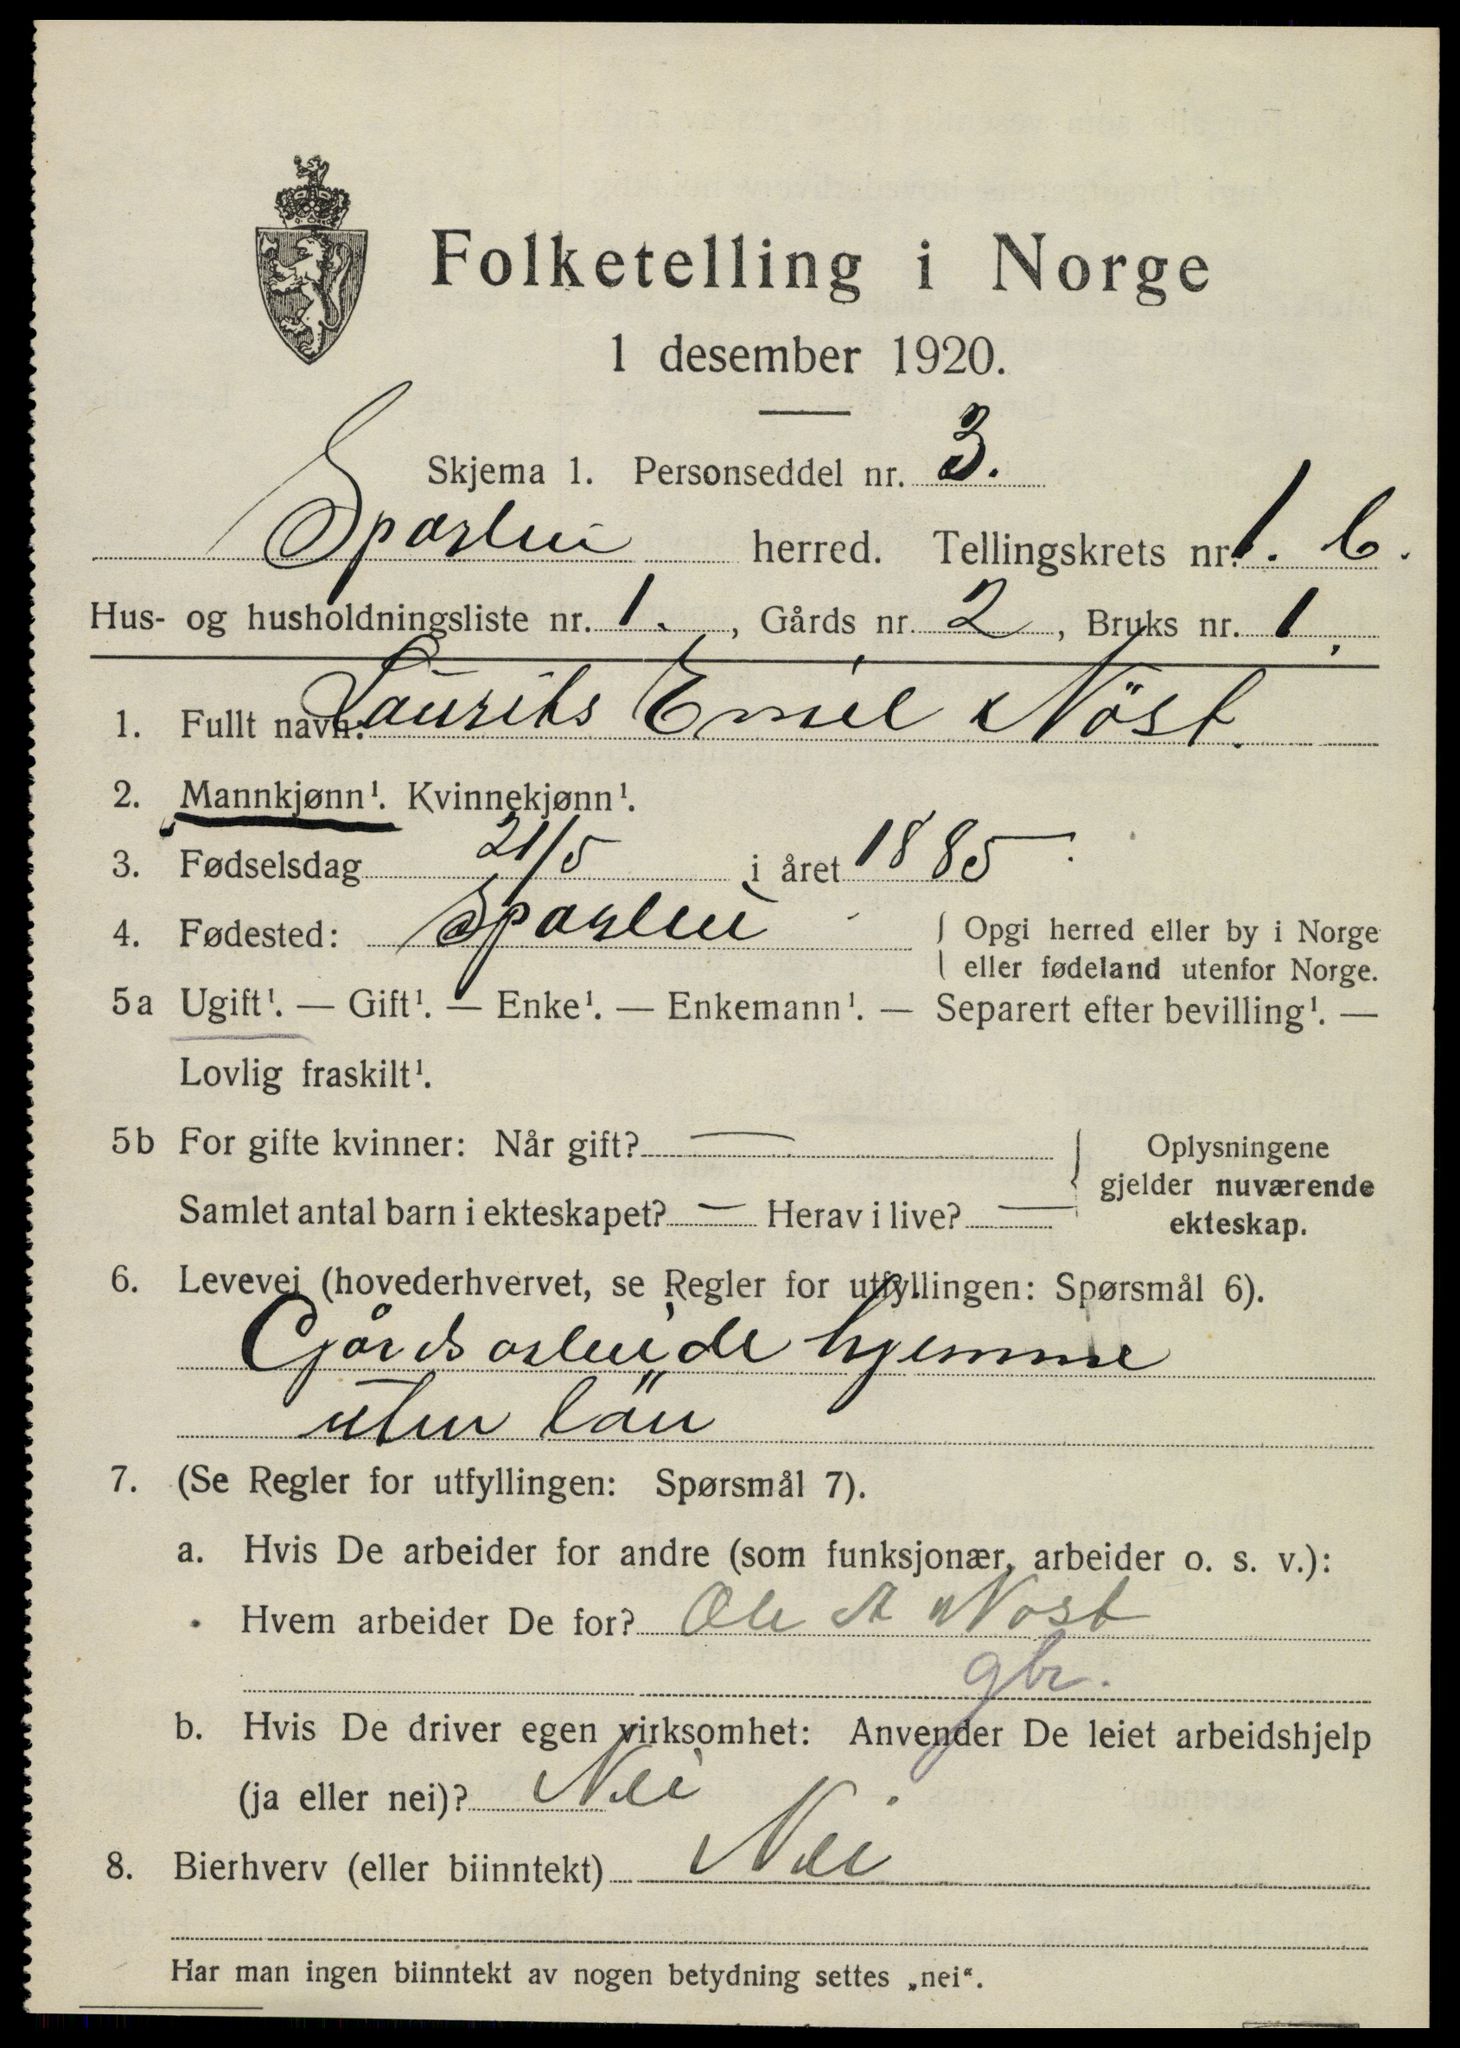 Folketelling i Norge
1 desember 1920.
Skjema 1. Personseddel nr. 3.
Sparbu herred. Tellingskrets nr. 1. C.
Hus- og husholdningsliste nr. 1. , Gårds nr. 2 , Bruks nr. 1.
1. Fullt navn: Laurits Emil Nöst.
2. Mannkjønn¹. Kvinnekjønn¹.
3. Fødselsdag 21/5 i året 1885.
4. Fødested: Sparbu { Opgi herred eller by i Norge
eller fødeland utenfor Norge.
5a Ugift¹. — Gift¹. — Enke¹. — Enkemann¹. — Separert efter bevilling¹. —
Lovlig fraskilt¹.
5b For gifte kvinner: Når gift? — } Oplysningene
gjelder nuværende
Samlet antal barn i ekteskapet? — Herav i live? —
ekteskap.
6. Levevei (hovederhvervet, se Regler for utfyllingen: Spørsmål 6).
Gårdsarbeide hjemme
uten lön
7. (Se Regler for utfyllingen: Spørsmål 7).
a. Hvis De arbeider for andre (som funksjonær, arbeider o. s. v.):
Hvem arbeider De for? Ole A Nöst
gbr.
b. Hvis De driver egen virksomhet: Anvender De leiet arbeidshjelp
(ja eller nei)? Nei
8. Bierhverv (eller biinntekt) Nei
Har man ingen biinntekt av nogen betydning settes „nei“.